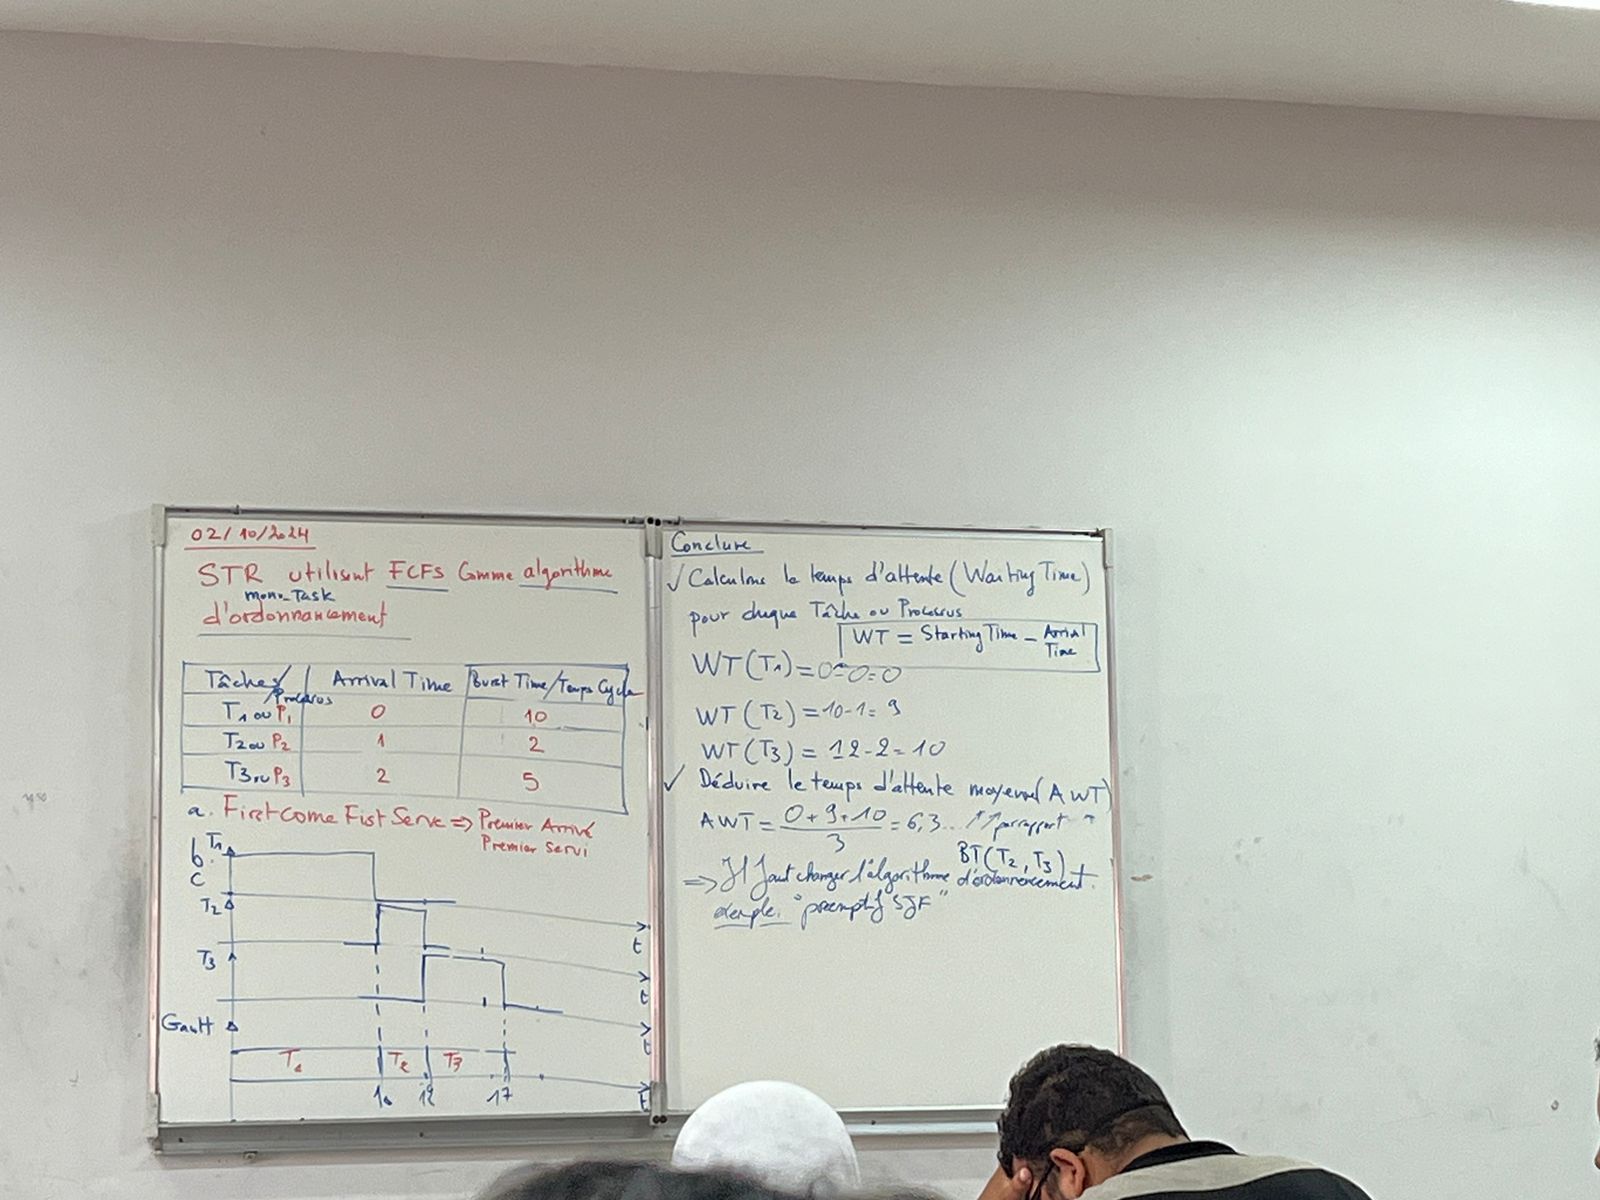 02/10/2024
STR utilisent FCFS Comme algorithme
mono-Task
d'ordonnancement
Tâches/Processus Arrival Time Burst Time/Temps Cycle
T1 ou P1 0 10
T2 ou P2 1 2
T3 ou P3 2 5
a. First Come Fist Serve => Premier Arrivé
Premier servi
b. T1
c
T2
t
T3
t
Gantt
t
T1 T2 T3
10 12 17
t
Conclure
✓ Calculons le temps d'attente (Waiting Time)
pour chaque Tâche ou Processus
WT = Starting Time - Arrival Time
WT(T1) = 0-0=0
WT(T2) = 10-1= 9
WT(T3) = 12-2=10
✓ Déduire le temps d'attente moyenne (AWT)
AWT = 0+9+10 / 3 = 6,3... ↑↑ par rapport →
BT(T2, T3)
=> Il faut changer l'algorithme d'ordonnencement.
exemple. "preemptif SJF"